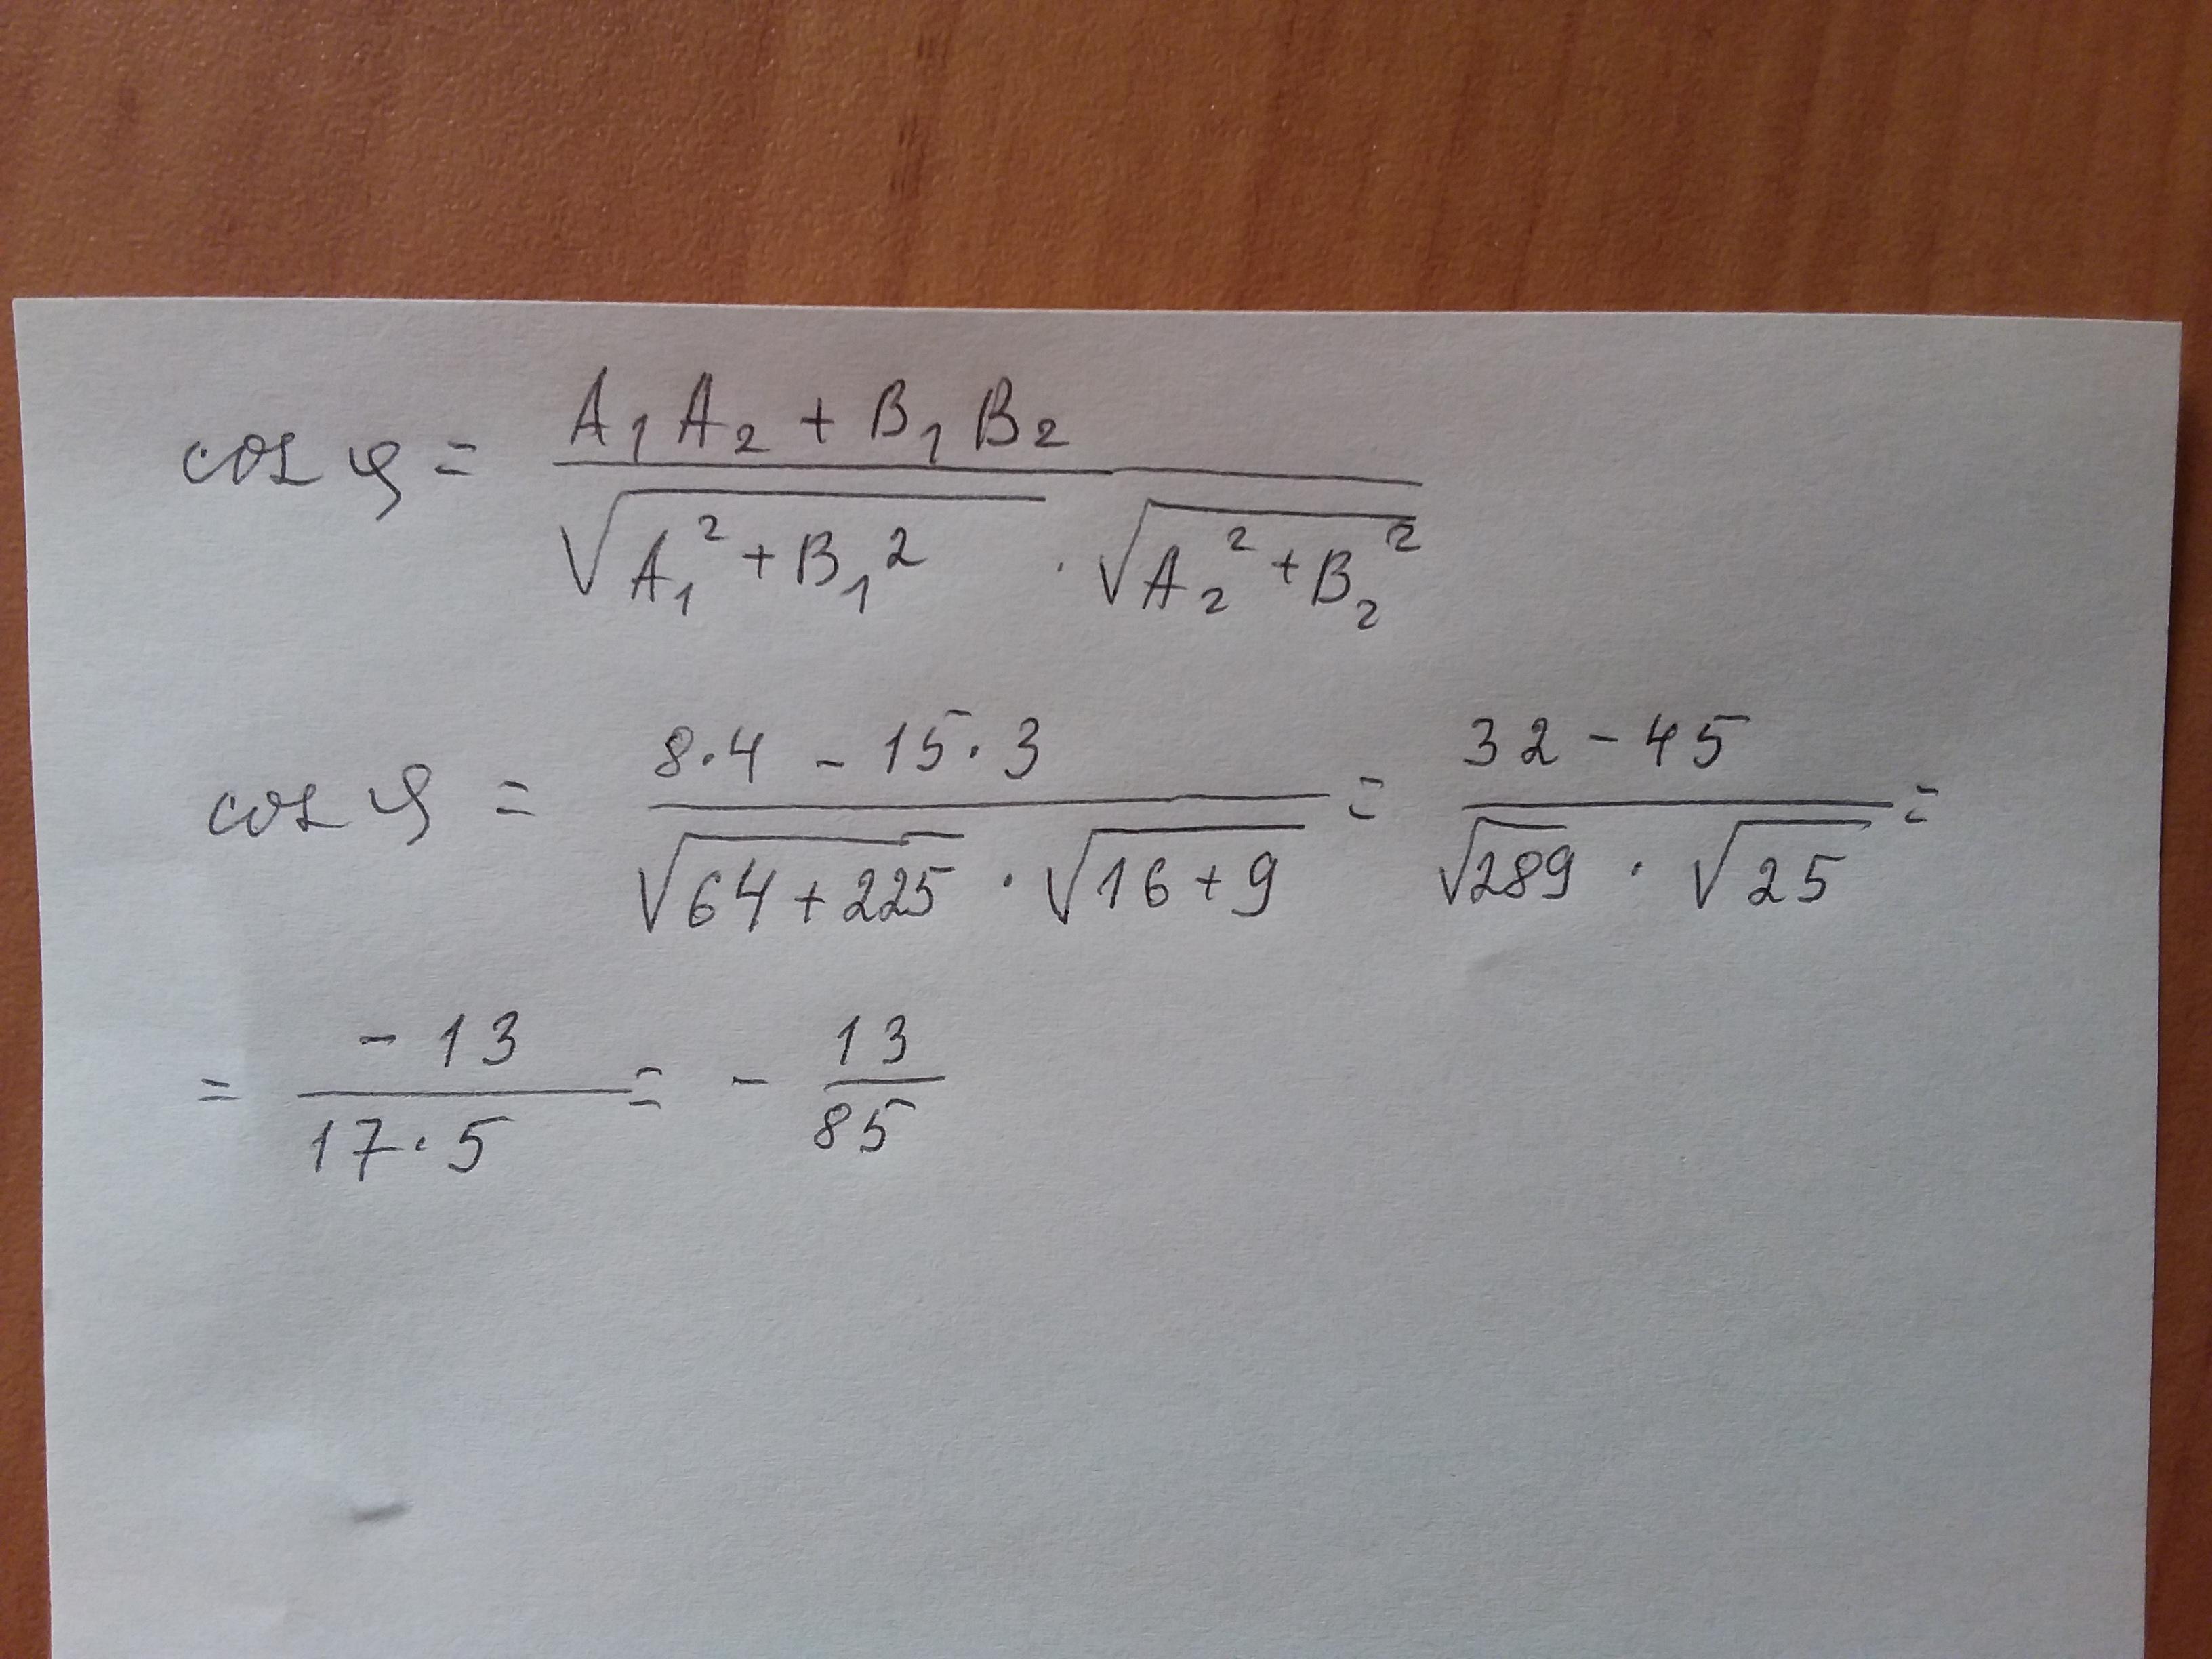 cos φ = (A₁A₂ + B₁B₂) / (√(A₁² + B₁²) · √(A₂² + B₂²))
cos φ = (8·4 - 15·3) / (√(64+225) · √(16+9)) = (32 - 45) / (√289 · √25) =
= (-13) / (17·5) = - 13/85